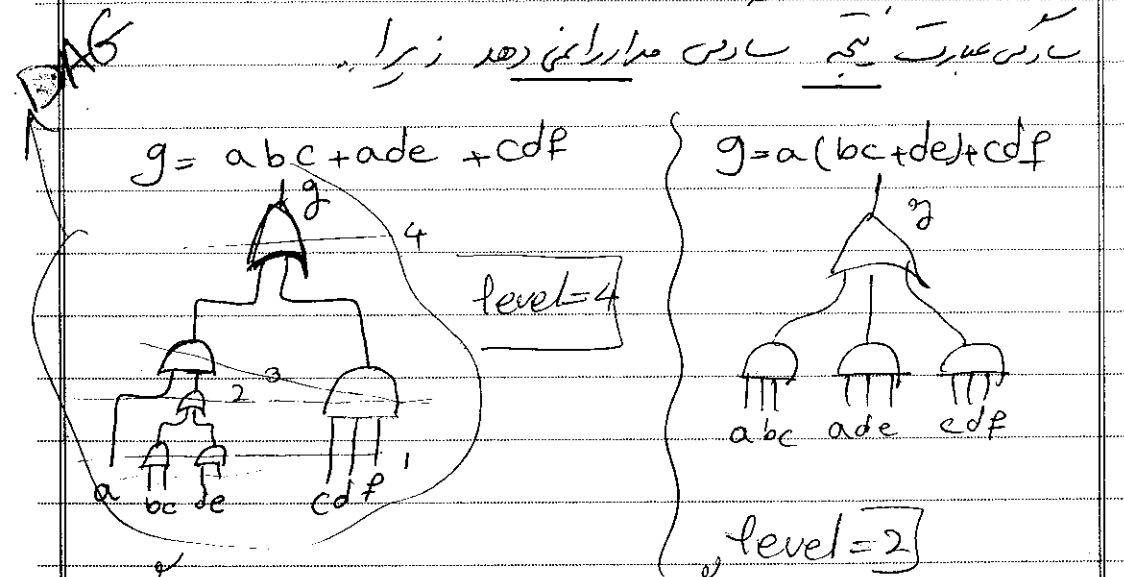 سادگی عبارت نتیجه سادگی مدار را نمی دهد زیرا ..
DAG
g = abc + ade + cdf
g
4
level=4
3
2
1
a bc de cdf
g = a(bc+de)+cdf
g
abc ade cdf
level=2